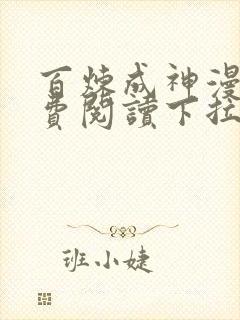 百炼成神漫
费閱讀下拉
班小婕